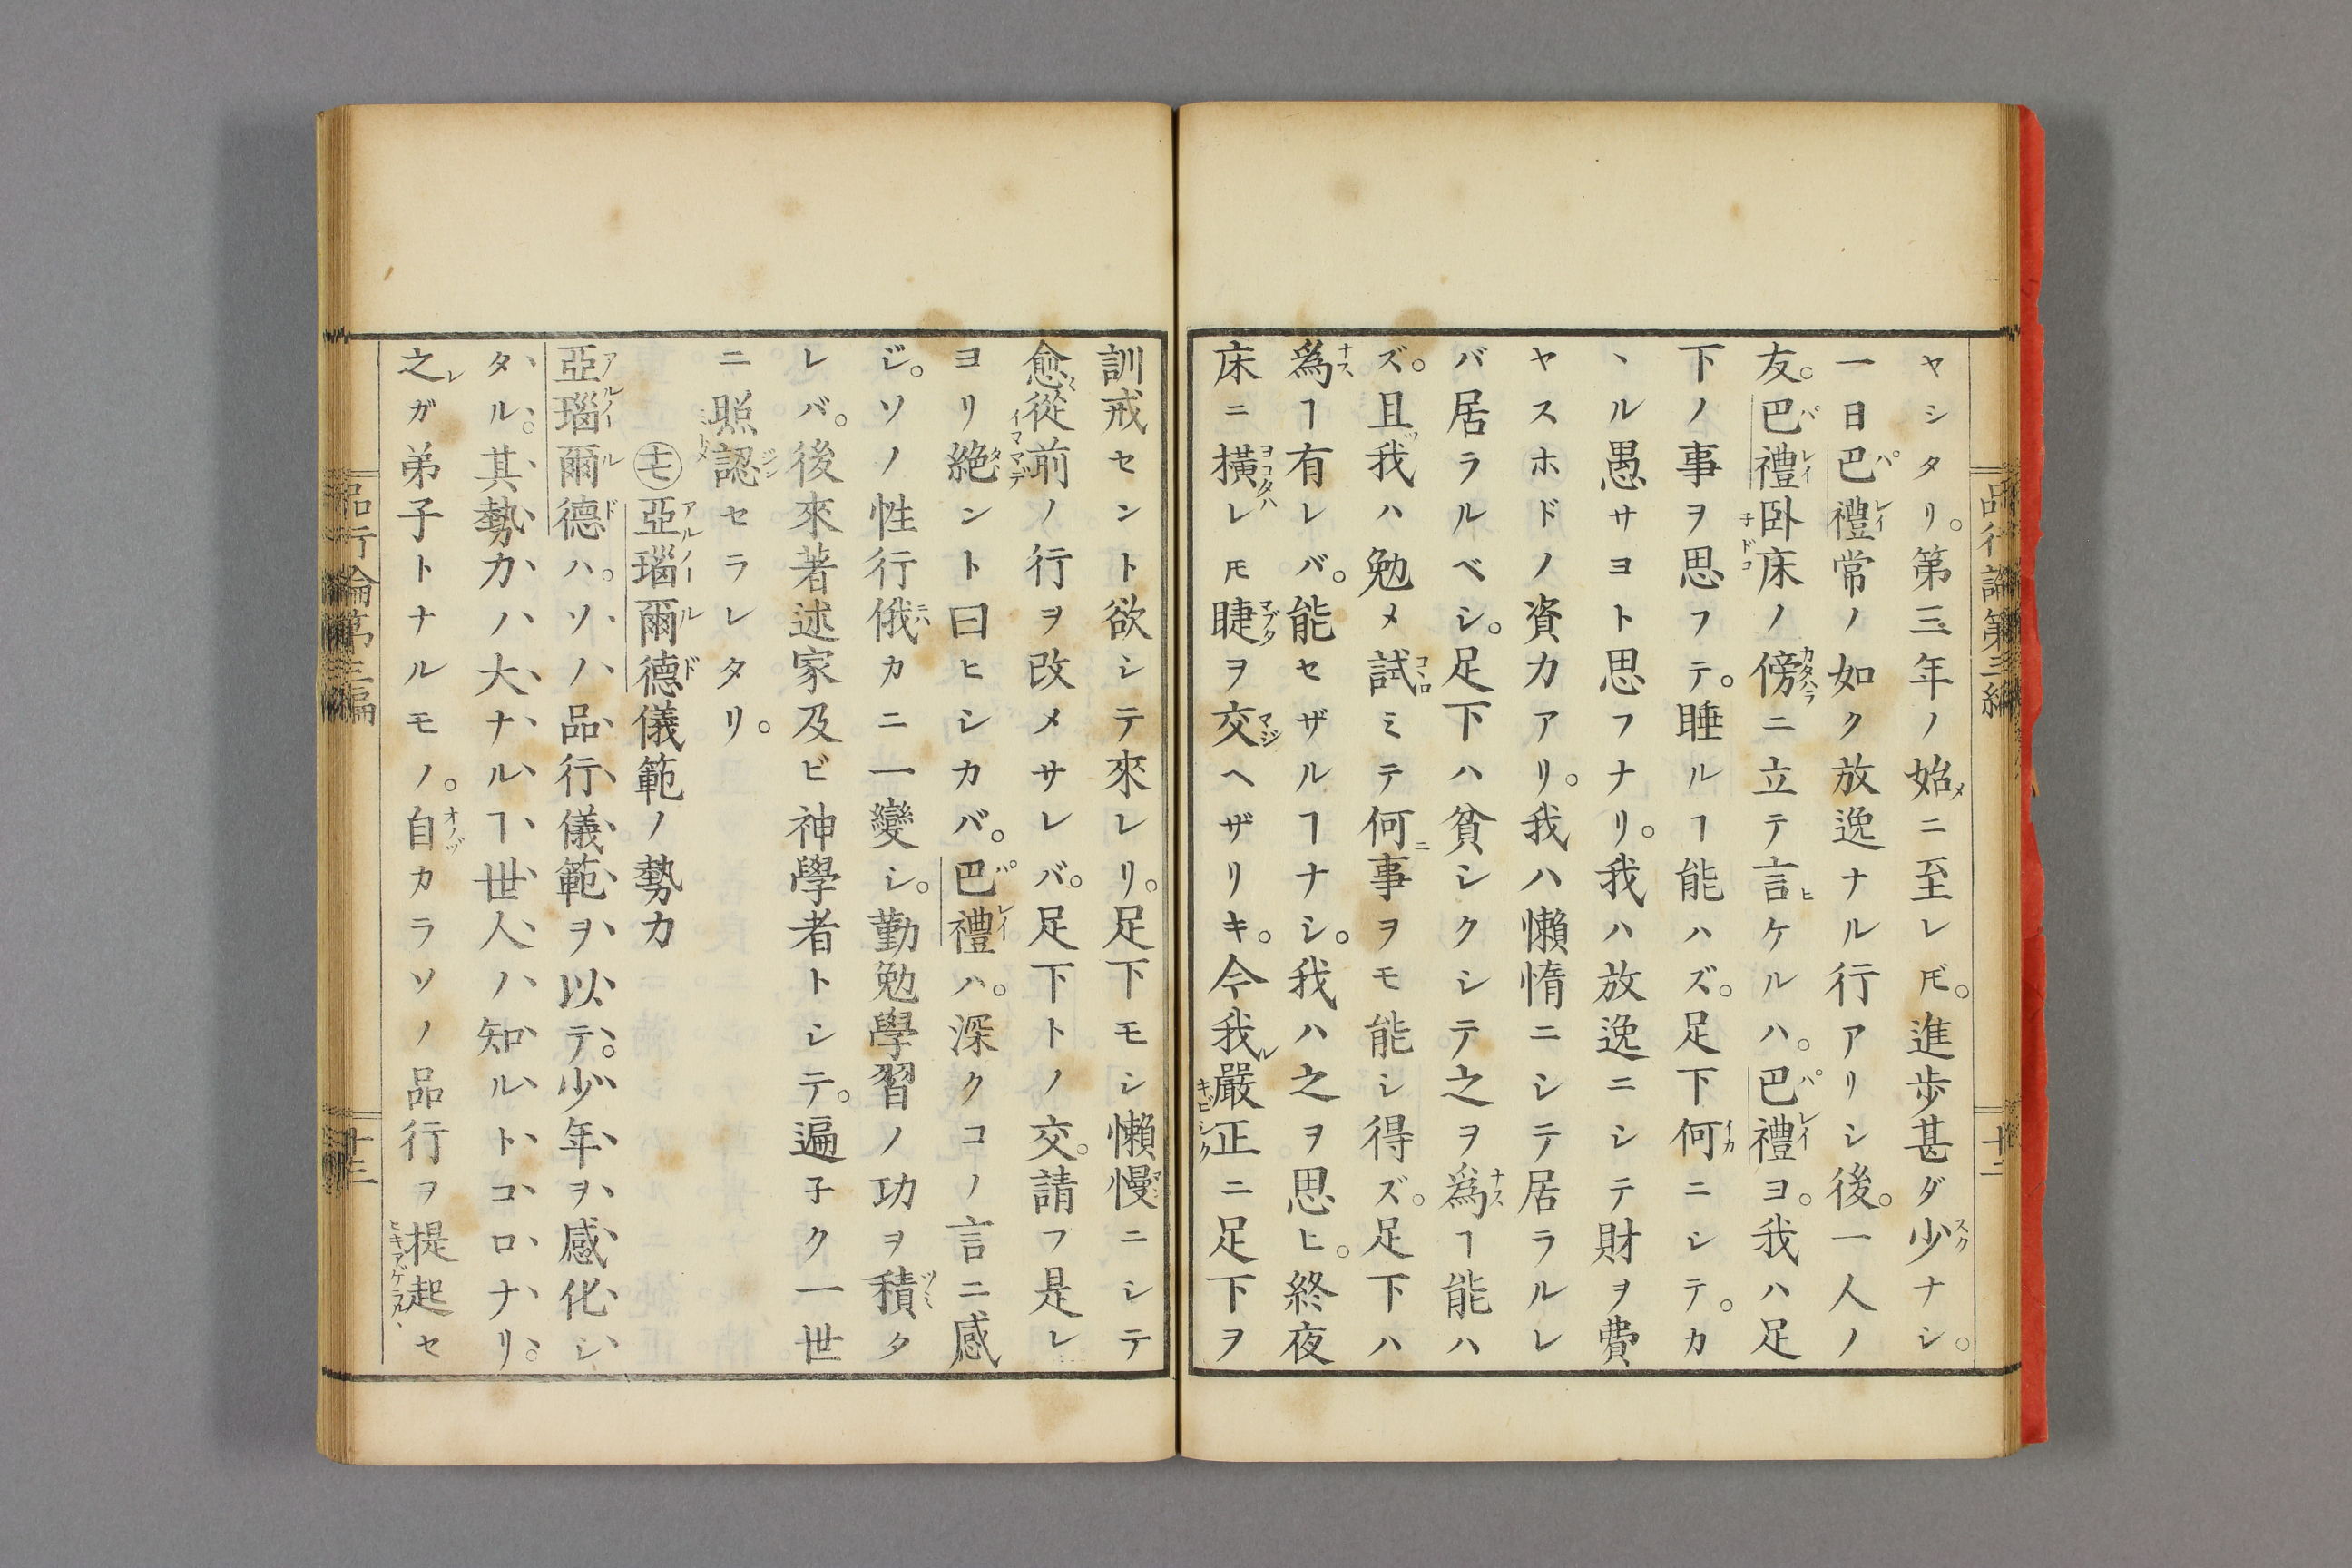 ヤシタリ。第三年ノ始ニ至レ𪜈。進歩甚ダ少ナシ。
一日巴禮常ノ如ク放逸ナル行アリシ後。一人ノ
友。巴禮卧床ノ傍ニ立テ言ケルハ。巴禮ヨ。我ハ足
下ノ事ヲ思フテ。睡ルヿ能ハズ。足下何ニシテ。カ
ヽル愚サヨト思フナリ。我ハ放逸ニシテ財ヲ費
ヤスホドノ資力アリ。我ハ懶惰ニシテ居ラルレ
バ居ラルベシ。足下ハ貧シクシテ之ヲ爲ヿ能ハ
ズ。且我ハ勉メ試ミテ何事ヲモ能シ得ズ。足下ハ
爲ヿ有レバ。能セザルヿナシ。我ハ之ヲ思ヒ。終夜
床ニ橫レ𪜈睫ヲ交ヘザリキ。今我嚴正ニ足下ヲ
品行論第三編
十二
訓戒セント欲シテ來レリ。足下モシ懶慢ニシテ
愈從前ノ行ヲ改メサレバ。足下トノ交。請フ是レ
ヨリ絶ント曰ヒシカバ。巴禮ハ。深クコノ言ニ感
ジ。ソノ性行俄カニ一變シ。勤勉學習ノ功ヲ積タ
レバ。後來著述家及ビ神學者トシテ。遍子ク一世
ニ照認セラレタリ。
㊉七亞瑙爾德儀範ノ勢力
亞瑙爾德ハ。ソノ品行儀範ヲ以テ。少年ヲ感化シ
タル。其勢力ノ大ナルヿ世人ノ知ルトコロナリ。
之ガ弟子トナルモノ。自カラソノ品行ヲ提起セ
品行論第三編
十三